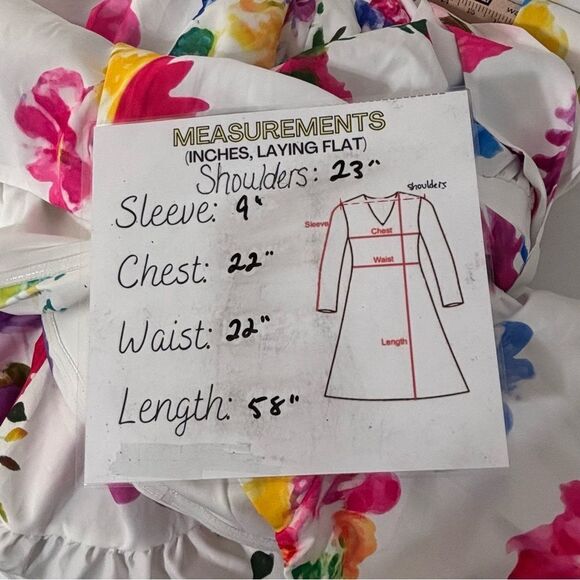 MEASUREMENTS
(INCHES, LAYING FLAT)
Shoulders: 23"
Sleeve: 9"
Chest: 22"
Waist: 22"
Length: 58"
shoulders
Sleeve
Chest
Waist
Length